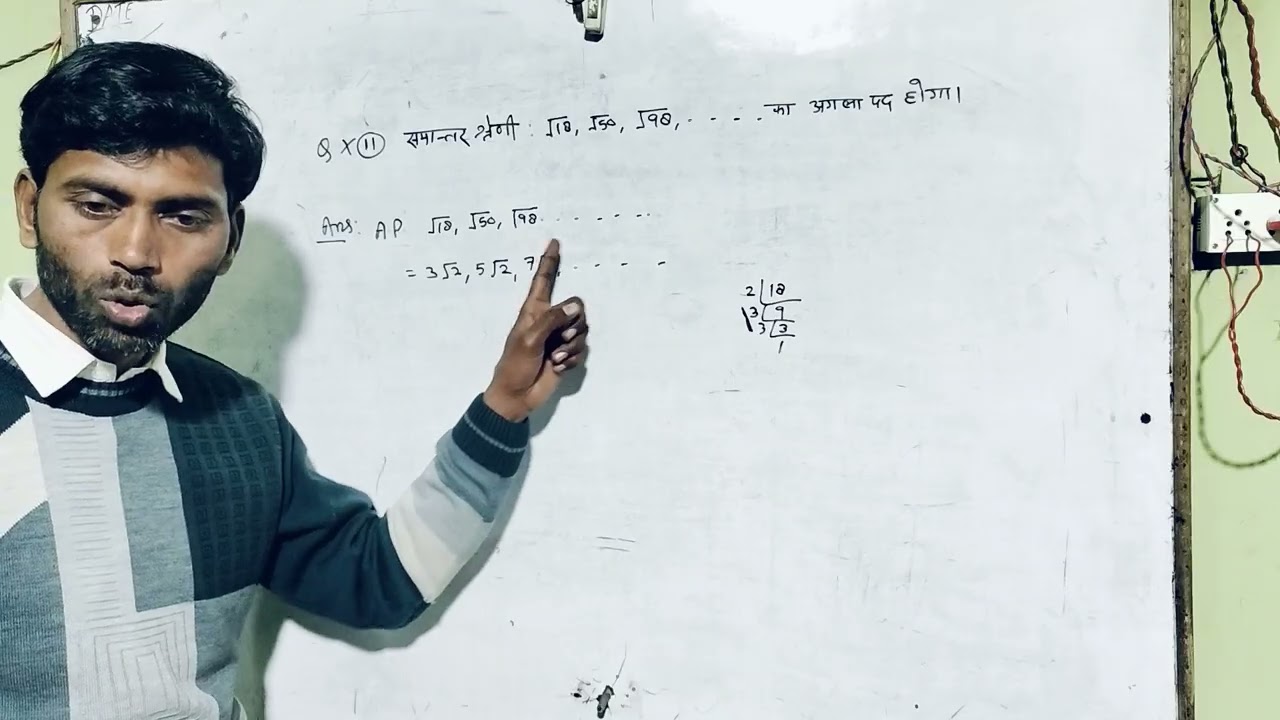 DATE
Q × 11 समान्तर श्रेणी : √18, √50, √98, - - - - का अगला पद होगा।
Ans: AP √18, √50, √98 - - - - - -
= 3√2, 5√2, 7 , - - - -
2 | 18
3 | 9
3 | 3
1